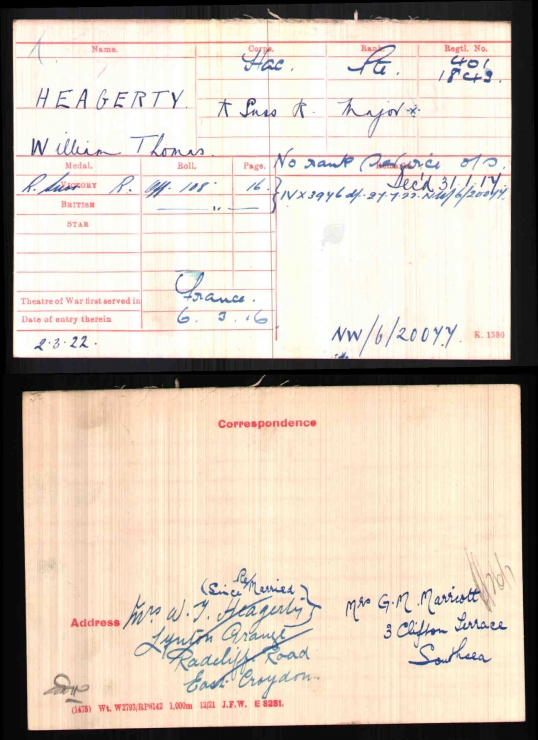 Name. Corps. Rank. Regtl. No.
Hac. Pte. 401
1843.
HEAGERTY. R Suss R. Major *
William Thomas.
Medal. Roll. Page. No rank service o/s.
VICTORY R. Suss R. Off. 108. 16. Dec'd 31.1.17
BRITISH — " —
STAR
Theatre of War first served in France.
Date of entry therein 6. 3 .16
2.3.22. NW/6/20077. K. 1380
Correspondence
(Since Re Married)
Address Mrs W. T. Heagerty
Lynton Grange
Radcliff Road
East Croydon.
Mrs G. M. Marriott
3 Clifton Terrace
Southsea
(1475) Wt. W2793/RP6142 1,000m 12/21 J.F.W. E 8251.